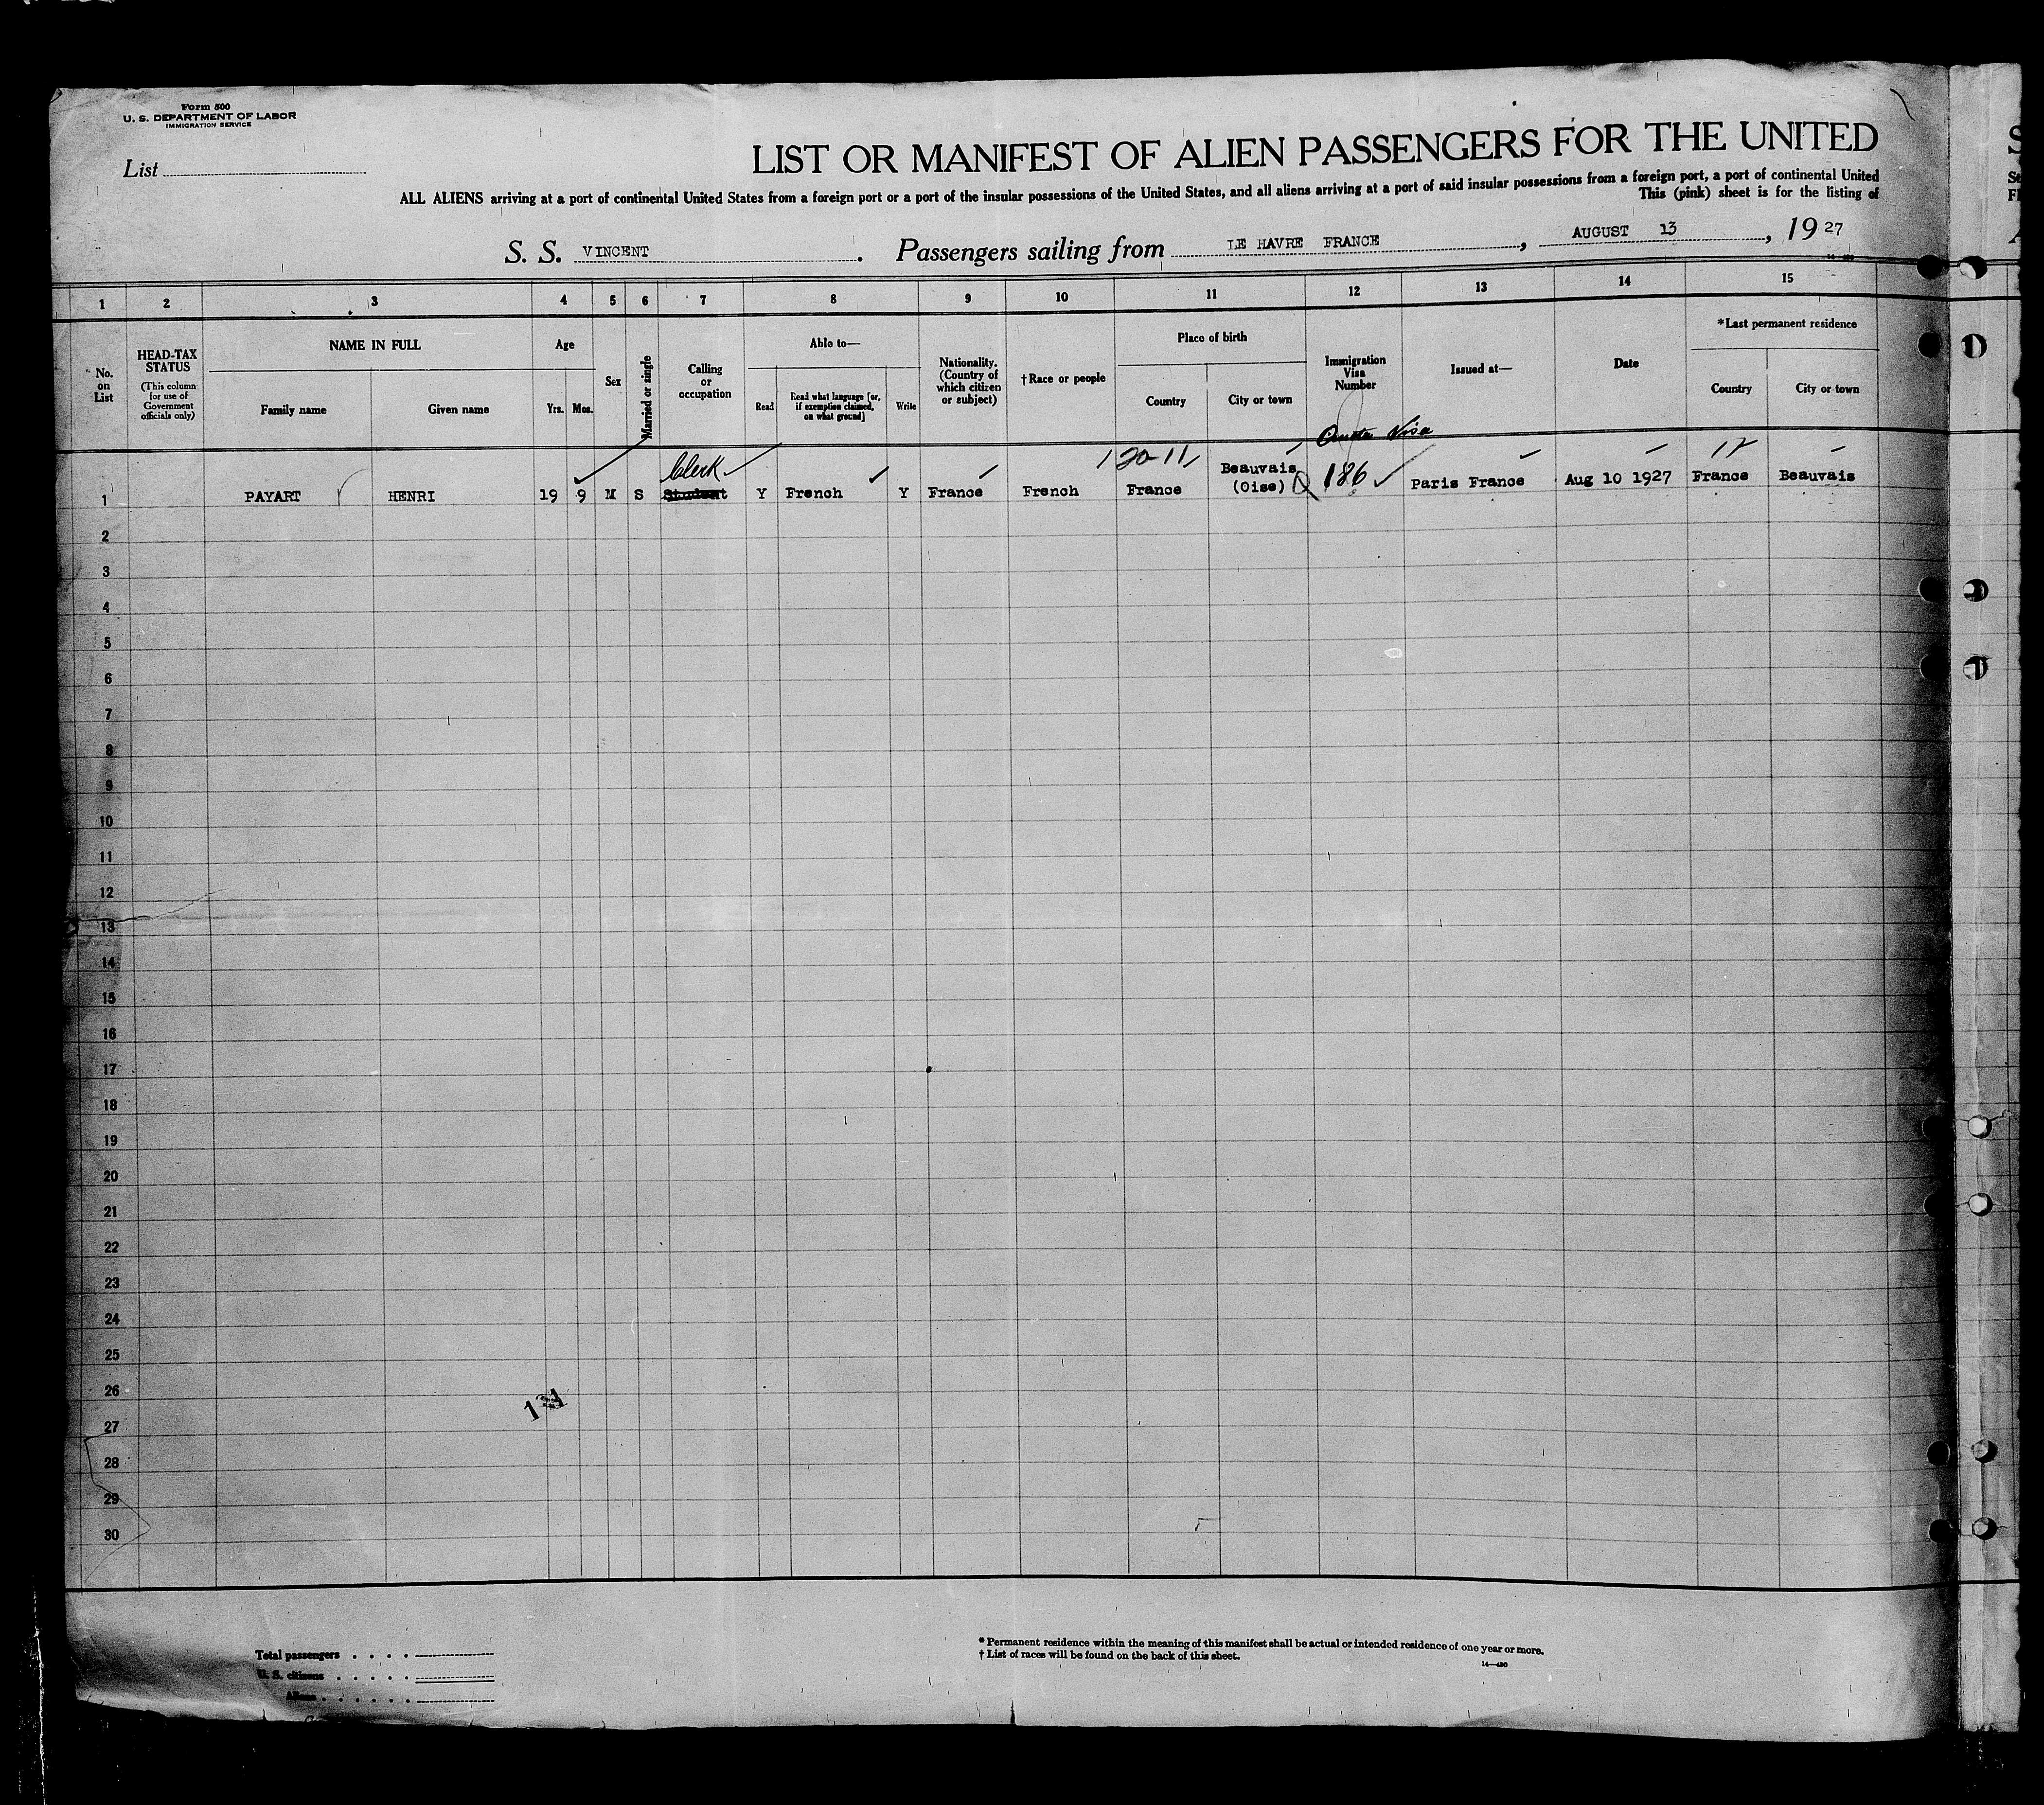 Form 500
U. S. DEPARTMENT OF LABOR
IMMIGRATION SERVICE
List
LIST OR MANIFEST OF ALIEN PASSENGERS FOR THE UNITED
ALL ALIENS arriving at a port of continental United States from a foreign port or a port of the insular possessions of the United States, and all aliens arriving at a port of said insular possessions from a foreign port, a port of continental United
This (pink) sheet is for the listing of
S. S. VINCENT. Passengers sailing from LE HAVRE FRANCE, AUGUST 13, 1927
1 2 3 4 5 6 7 8 9 10 11 12 13 14 15
No. on List
HEAD-TAX STATUS
(This column for use of Government officials only)
NAME IN FULL
Family name
Given name
Age
Yrs. Mos.
Sex
Married or single
Calling or occupation
Able to—
Read
Read what language [or, if exemption claimed, on what ground]
Write
Nationality. (Country of which citizen or subject)
†Race or people
Place of birth
Country
City or town
Immigration Visa Number
Issued at—
Date
*Last permanent residence
Country
City or town
Quota Visa
Clerk
20-11
1 PAYART HENRI 19 9 M S Student Y French Y France French France Beauvais (Oise) 186 Paris France Aug 10 1927 France Beauvais
2
3
4
5
6
7
8
9
10
11
12
13
14
15
16
17
18
19
20
21
22
23
24
25
26
27
28
29
30
Total passengers
U. S. citizens
Aliens
* Permanent residence within the meaning of this manifest shall be actual or intended residence of one year or more.
† List of races will be found on the back of this sheet.